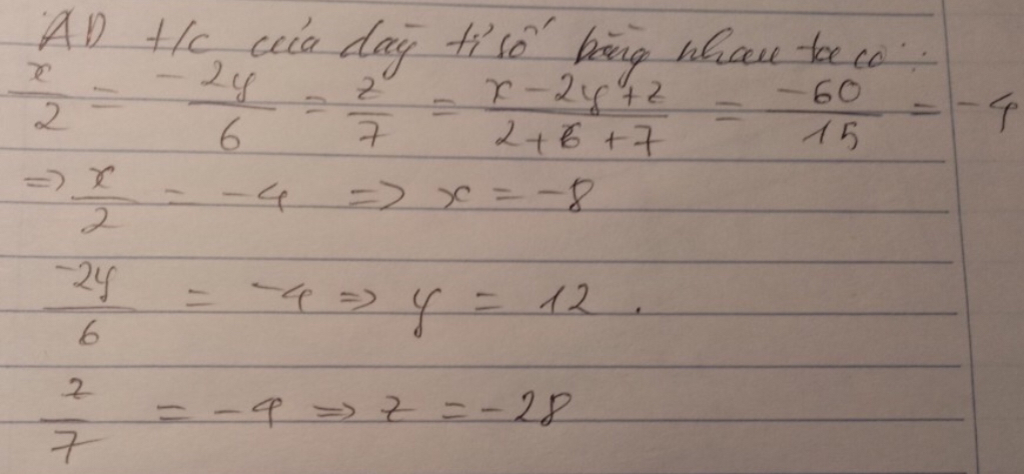 AD t/c của dãy tỉ số bằng nhau ta có:
x/2 = -2y/6 = z/7 = x-2y+z/2+6+7 = -60/15 = -4
=> x/2 = -4 => x = -8
-2y/6 = -4 => y = 12.
z/7 = -4 => z = -28